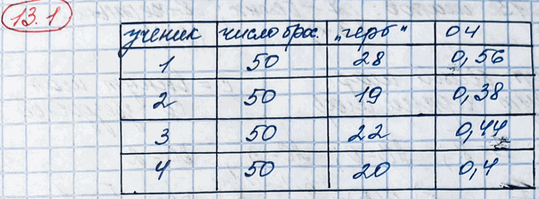 13.1
ученик число брос. "герб" ОЧ
1 50 28 0,56
2 50 19 0,38
3 50 22 0,44
4 50 20 0,4